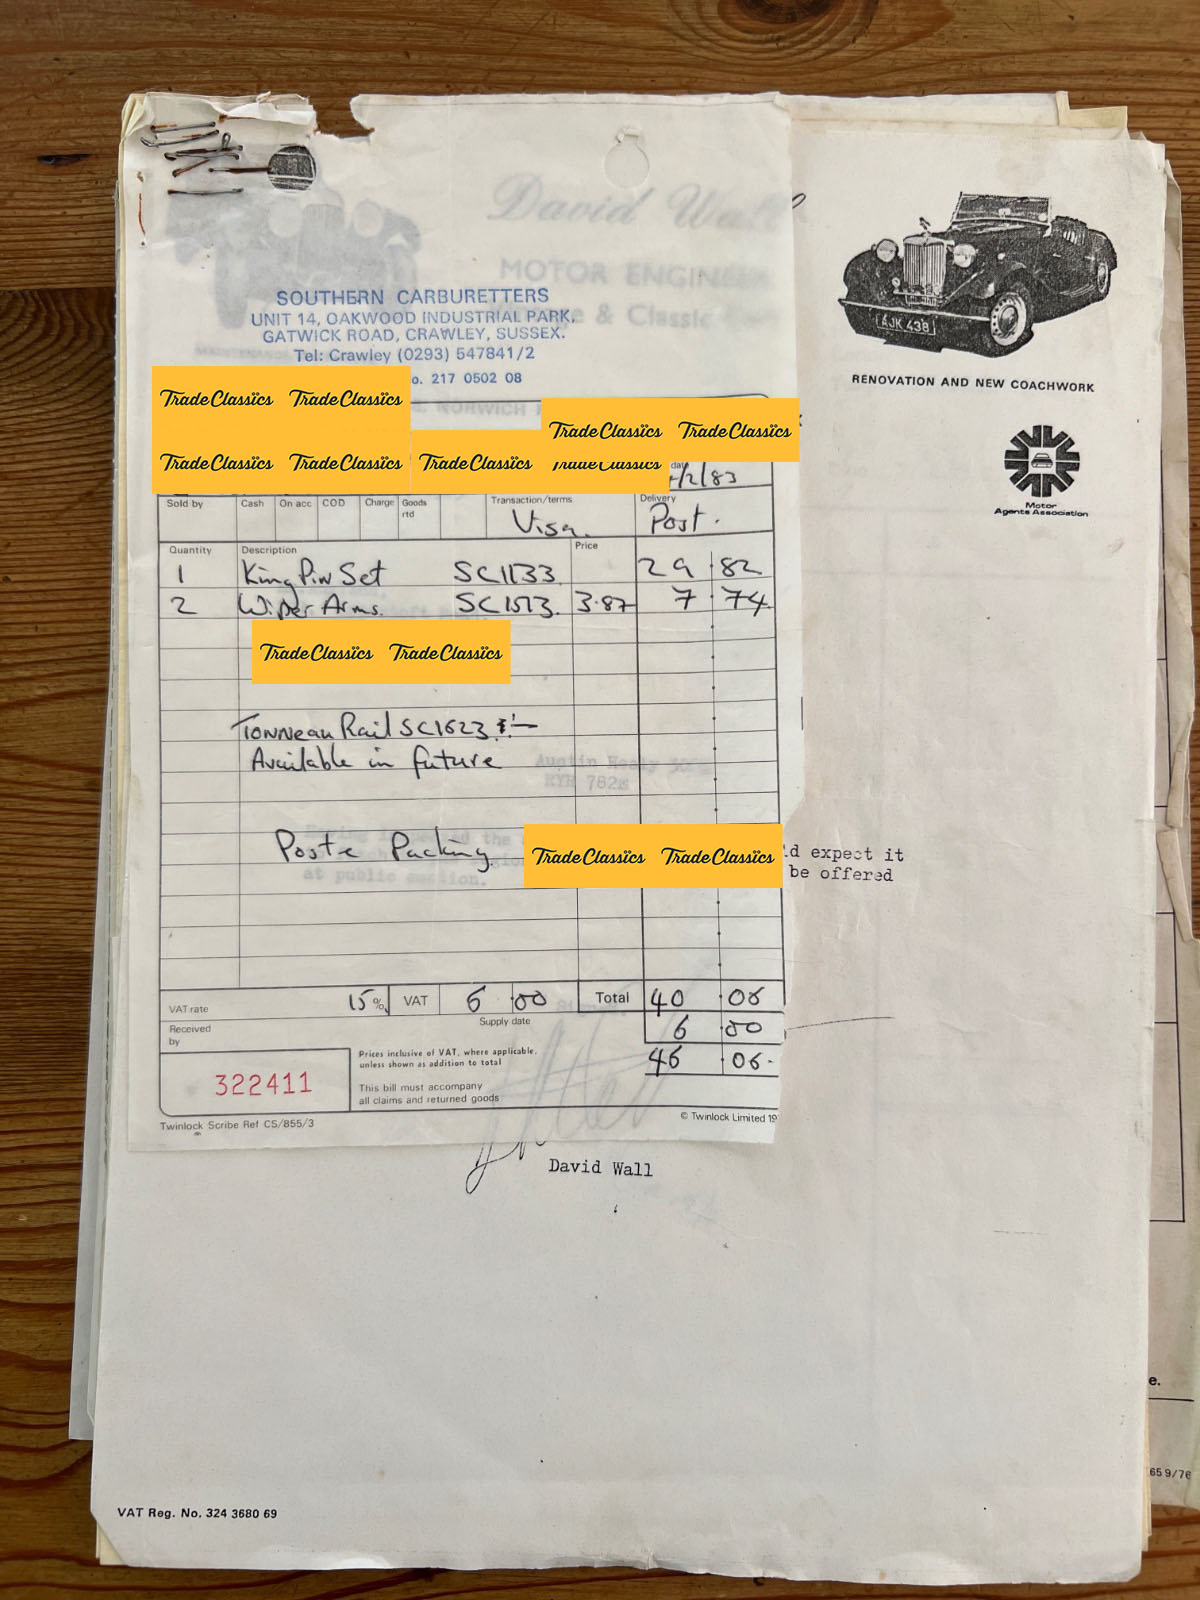 David Wall
MOTOR ENGINE
& Classic
SOUTHERN CARBURETTERS
UNIT 14, OAKWOOD INDUSTRIAL PARK,
GATWICK ROAD, CRAWLEY, SUSSEX.
Tel: Crawley (0293) 547841/2
o. 217 0502 08
NORWICH
AJK 438
RENOVATION AND NEW COACHWORK
Motor
Agents Association
Trade Classics Trade Classics
Trade Classics Trade Classics
Trade Classics Trade Classics
Trade Classics Trade Classics
date
/2/83
Sold by Cash On acc COD Charge Goods rtd Transaction/terms Delivery
Visa Post.
Quantity Description Price
1 King Pin Set SC1133 29 82
2 Wiper Arms. SC1513. 3.87 7 74
Trade Classics Trade Classics
Tonneau Rail SC1623
Available in future
Austin Healy
KYH 782
Post & Packing
Trade Classics Trade Classics
the
at public auction.
ld expect it
be offered
VAT rate 15% VAT 6 00 Total 40 06
Received by Supply date 6 00
46 06.
Prices inclusive of VAT, where applicable,
unless shown as addition to total
322411
This bill must accompany
all claims and returned goods
Twinlock Scribe Ref CS/855/3 © Twinlock Limited 19
David Wall
e.
65 9/76
VAT Reg. No. 324 3680 69